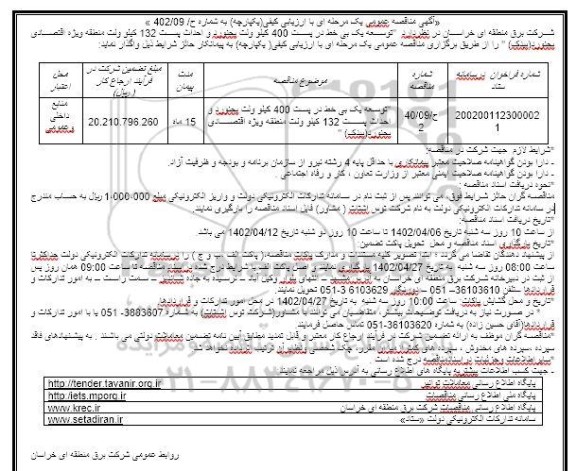 «آگهی مناقصه عمومی یک مرحله ای با ارزیابی کیفی(یکپارچه) به شماره ح/ 402/09 »
شرکت برق منطقه ای خراسان در نظر دارد "توسعه یک بی خط در پست 400 کیلو ولت بجنورد و احداث پست 132 کیلو ولت منطقه ویژه اقتصادی
بجنورد(بیدک) " را از طریق برگزاری مناقصه عمومی یک مرحله ای با ارزیابی کیفی( یکپارچه) به پیمانکار حائز شرایط ذیل واگذار نماید:
شماره فراخوان در سامانه ستاد
شماره مناقصه
موضوع مناقصه
مدت پیمان
مبلغ تضمین شرکت در فرآیند ارجاع کار (ریال)
محل اعتبار
2002001123000021
ح/40/092
"توسعه یک بی خط در پست 400 کیلو ولت بجنورد و احداث پست 132 کیلو ولت منطقه ویژه اقتصادی بجنورد(بیدک) "
15 ماه
20.210.796.260
منابع داخلی و عمومی
*شرایط لازم جهت شرکت در مناقصه:
- دارا بودن گواهینامه صلاحیت معتبر پیمانکاری با حداقل پایه 4 رشته نیرو از سازمان برنامه و بودجه و ظرفیت آزاد.
- دارا بودن گواهینامه صلاحیت ایمنی معتبر از وزارت تعاون ، کار و رفاه اجتماعی .
*نحوه دریافت اسناد مناقصه :
مناقصه گران حائز شرایط فوق، می توانند پس از ثبت نام در سامانه تدارکات الکترونیکی دولت و واریز الکترونیکی مبلغ 000-000-1 ریال به حساب مندرج
در سامانه تدارکات الکترونیکی دولت به نام شرکت توس ( مشاور) فایل اسناد مناقصه را بارگیری نمایند.
*تاریخ دریافت اسناد مناقصه:
از ساعت 10 روز سه شنبه تاریخ 1402/04/06 تا ساعت 10 روز دو شنبه تاریخ 1402/04/12 می باشد
*تاریخ بارگذاری اسناد مناقصه و محل تحویل پاکت تضمین:
از پیشنهاد دهندگان تقاضا می گردد ؛ ابتدا تصویر کلیه مستندات و مدارک پاکات مناقصه ( پاکت الف ، ب و ج ) را در سامانه تدارکات الکترونیکی دولت حداکثر تا
ساعت 08:00 روز سه شنبه به تاریخ 1402/04/27 بارگذاری نمایند و اصل پاکت تضمین شرایط درج شده در مناقصه تا ساعت 09:00 همان روز پس
از ثبت در دبیرخانه شرکت برق منطقه ای خراسان به آدرس به امور تدارکات و
قراردادها (تلفن 36103610-051 – دورنگار 36103629-051) تحویل نمایند.
*تاریخ و محل گشایش پاکات: ساعت 10:00 روز سه شنبه به تاریخ 1402/04/27 در محل امور تدارکات و قراردادها.
* در صورت نیاز به دریافت توضیحات بیشتر، متقاضیان می توانند با مشاور(شرکت توس ) به شماره 3883607- 051 یا با امور تدارکات و
قراردادها(آقای حسین زاده) به شماره 36103620-051 تماس حاصل فرمایند.
*مناقصه گران موظف به ارائه تضمین شرکت در فرآیند ارجاع کار معتبر و قابل تمدید مطابق آیین نامه تضمین معاملات دولتی می باشند . به پیشنهادهای فاقد
سپرده، سپرده های مخدوش ، سپرده های کمتر از میزان مقرر، چک شخصی و نظایر آن ترتیب اثر داده نخواهد شد.
*سایر اطلاعات و جزئیات در اسناد مناقصه درج شده است
.جهت کسب اطلاعات بیشتر به پایگاه های اطلاع رسانی به آدرس ذیل مراجعه نمایند.
پایگاه اطلاع رسانی معاملات توانیر http://tender.tavanir.org.ir
پایگاه ملی اطلاع رسانی مناقصات http://iets.mporg.ir
پایگاه اطلاع رسانی مناقصات شرکت برق منطقه ای خراسان www.krec.ir
سامانه تدارکات الکترونیکی دولت «ستاد» www.setadiran.ir
روابط عمومی شرکت برق منطقه ای خراسان